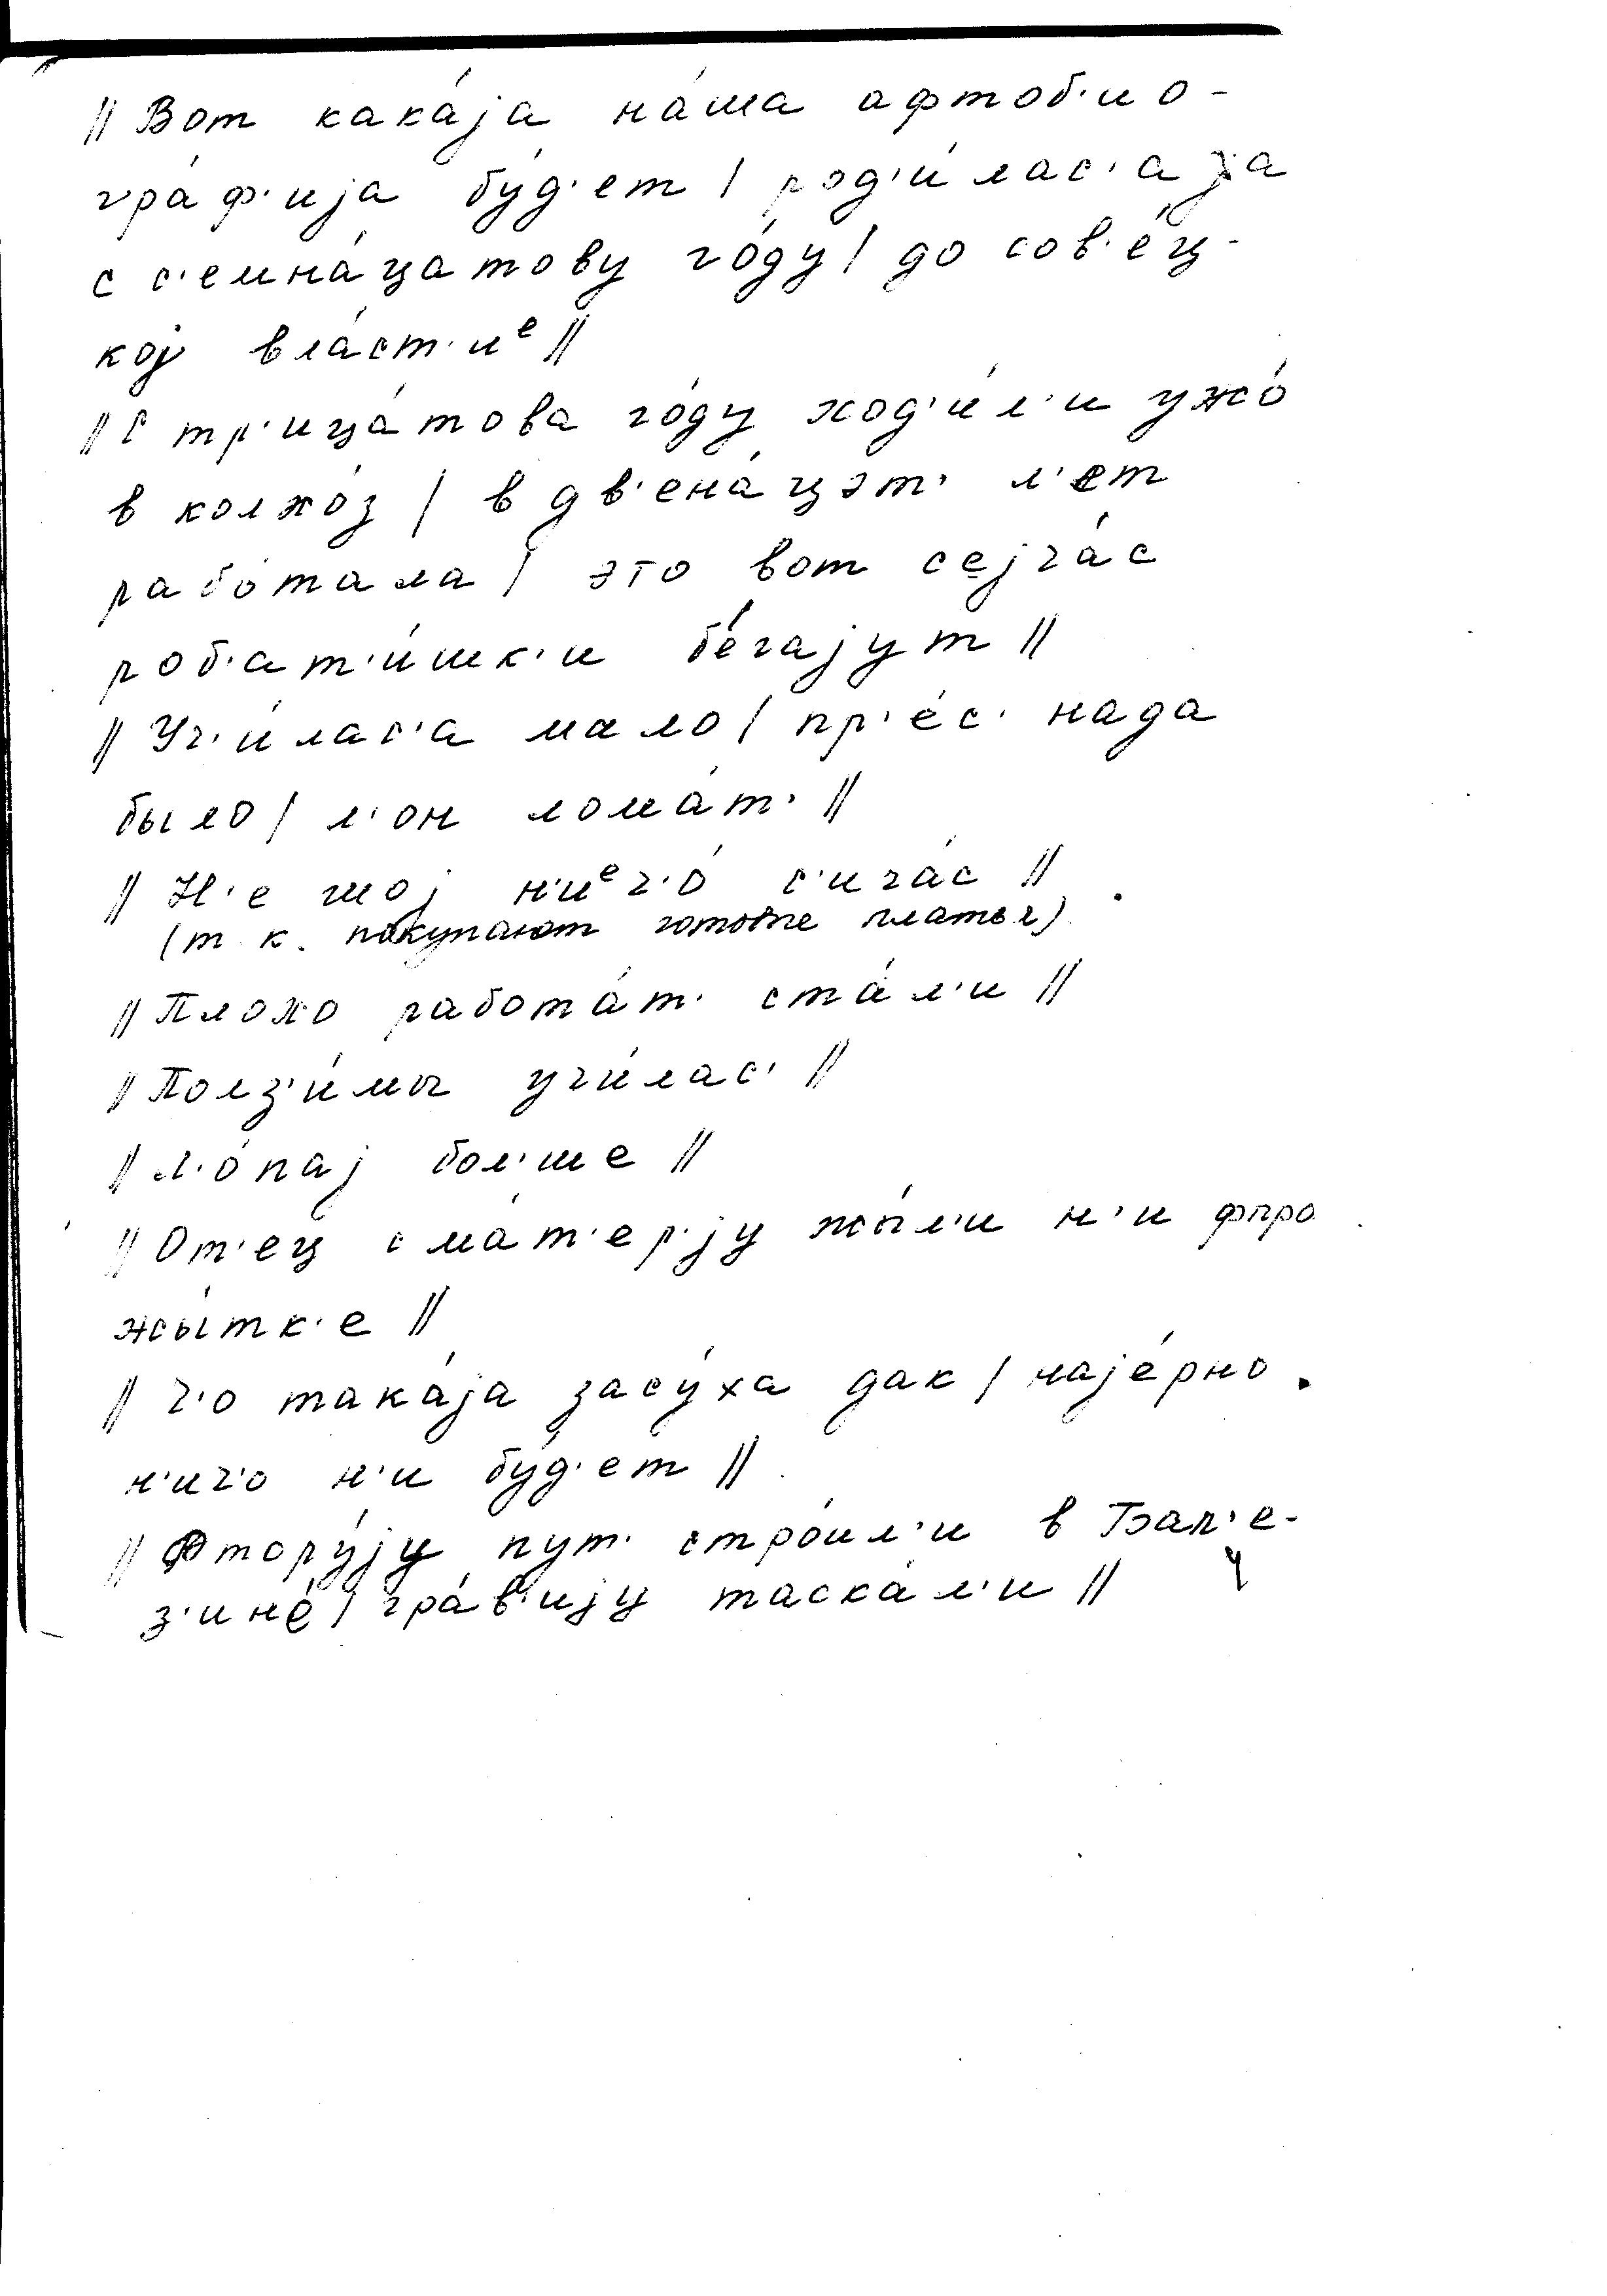 || Вот кака́jа на́ша афтоб'ио-
гра́ф'иjа бу́д'ет | род'и́лас'а jа
с с'емна́цатову го́ду | до сов'е́ц-
коj вла́ст'иᵉ ||
|| С тр'ица́това го́ду ход'и́л'и ужо́
в колхо́з | в дв'ена́цэт' л'ет
рабо́тала | это вот сеjча́с
роб'ат'и́шк'и бе́гаjут ||
|| Уч'и́лас'а мало | пр'е́с' нада
было | л'он лома́т' ||
|| Н'е шоj н'иᵉч'о́ с'ича́с ||
(т.к. покупают готовые платья)
|| Плохо работа́т' ста́л'и ||
|| Полз'и́мы учи́лас' ||
|| Л'о́паj бол'ше ||
|| От'ец с ма́т'ер'jу жы́л'и н'и фпро
жы́тк'е ||
|| Ч'о така́jа засу́ха дак | наjе́рно
н'ич'о н'и бу́д'ет ||
|| Фтору́jу пут' стро́ил'и в Бал'е-
з'ине́ | гра́в'иjу таска́л'и ||